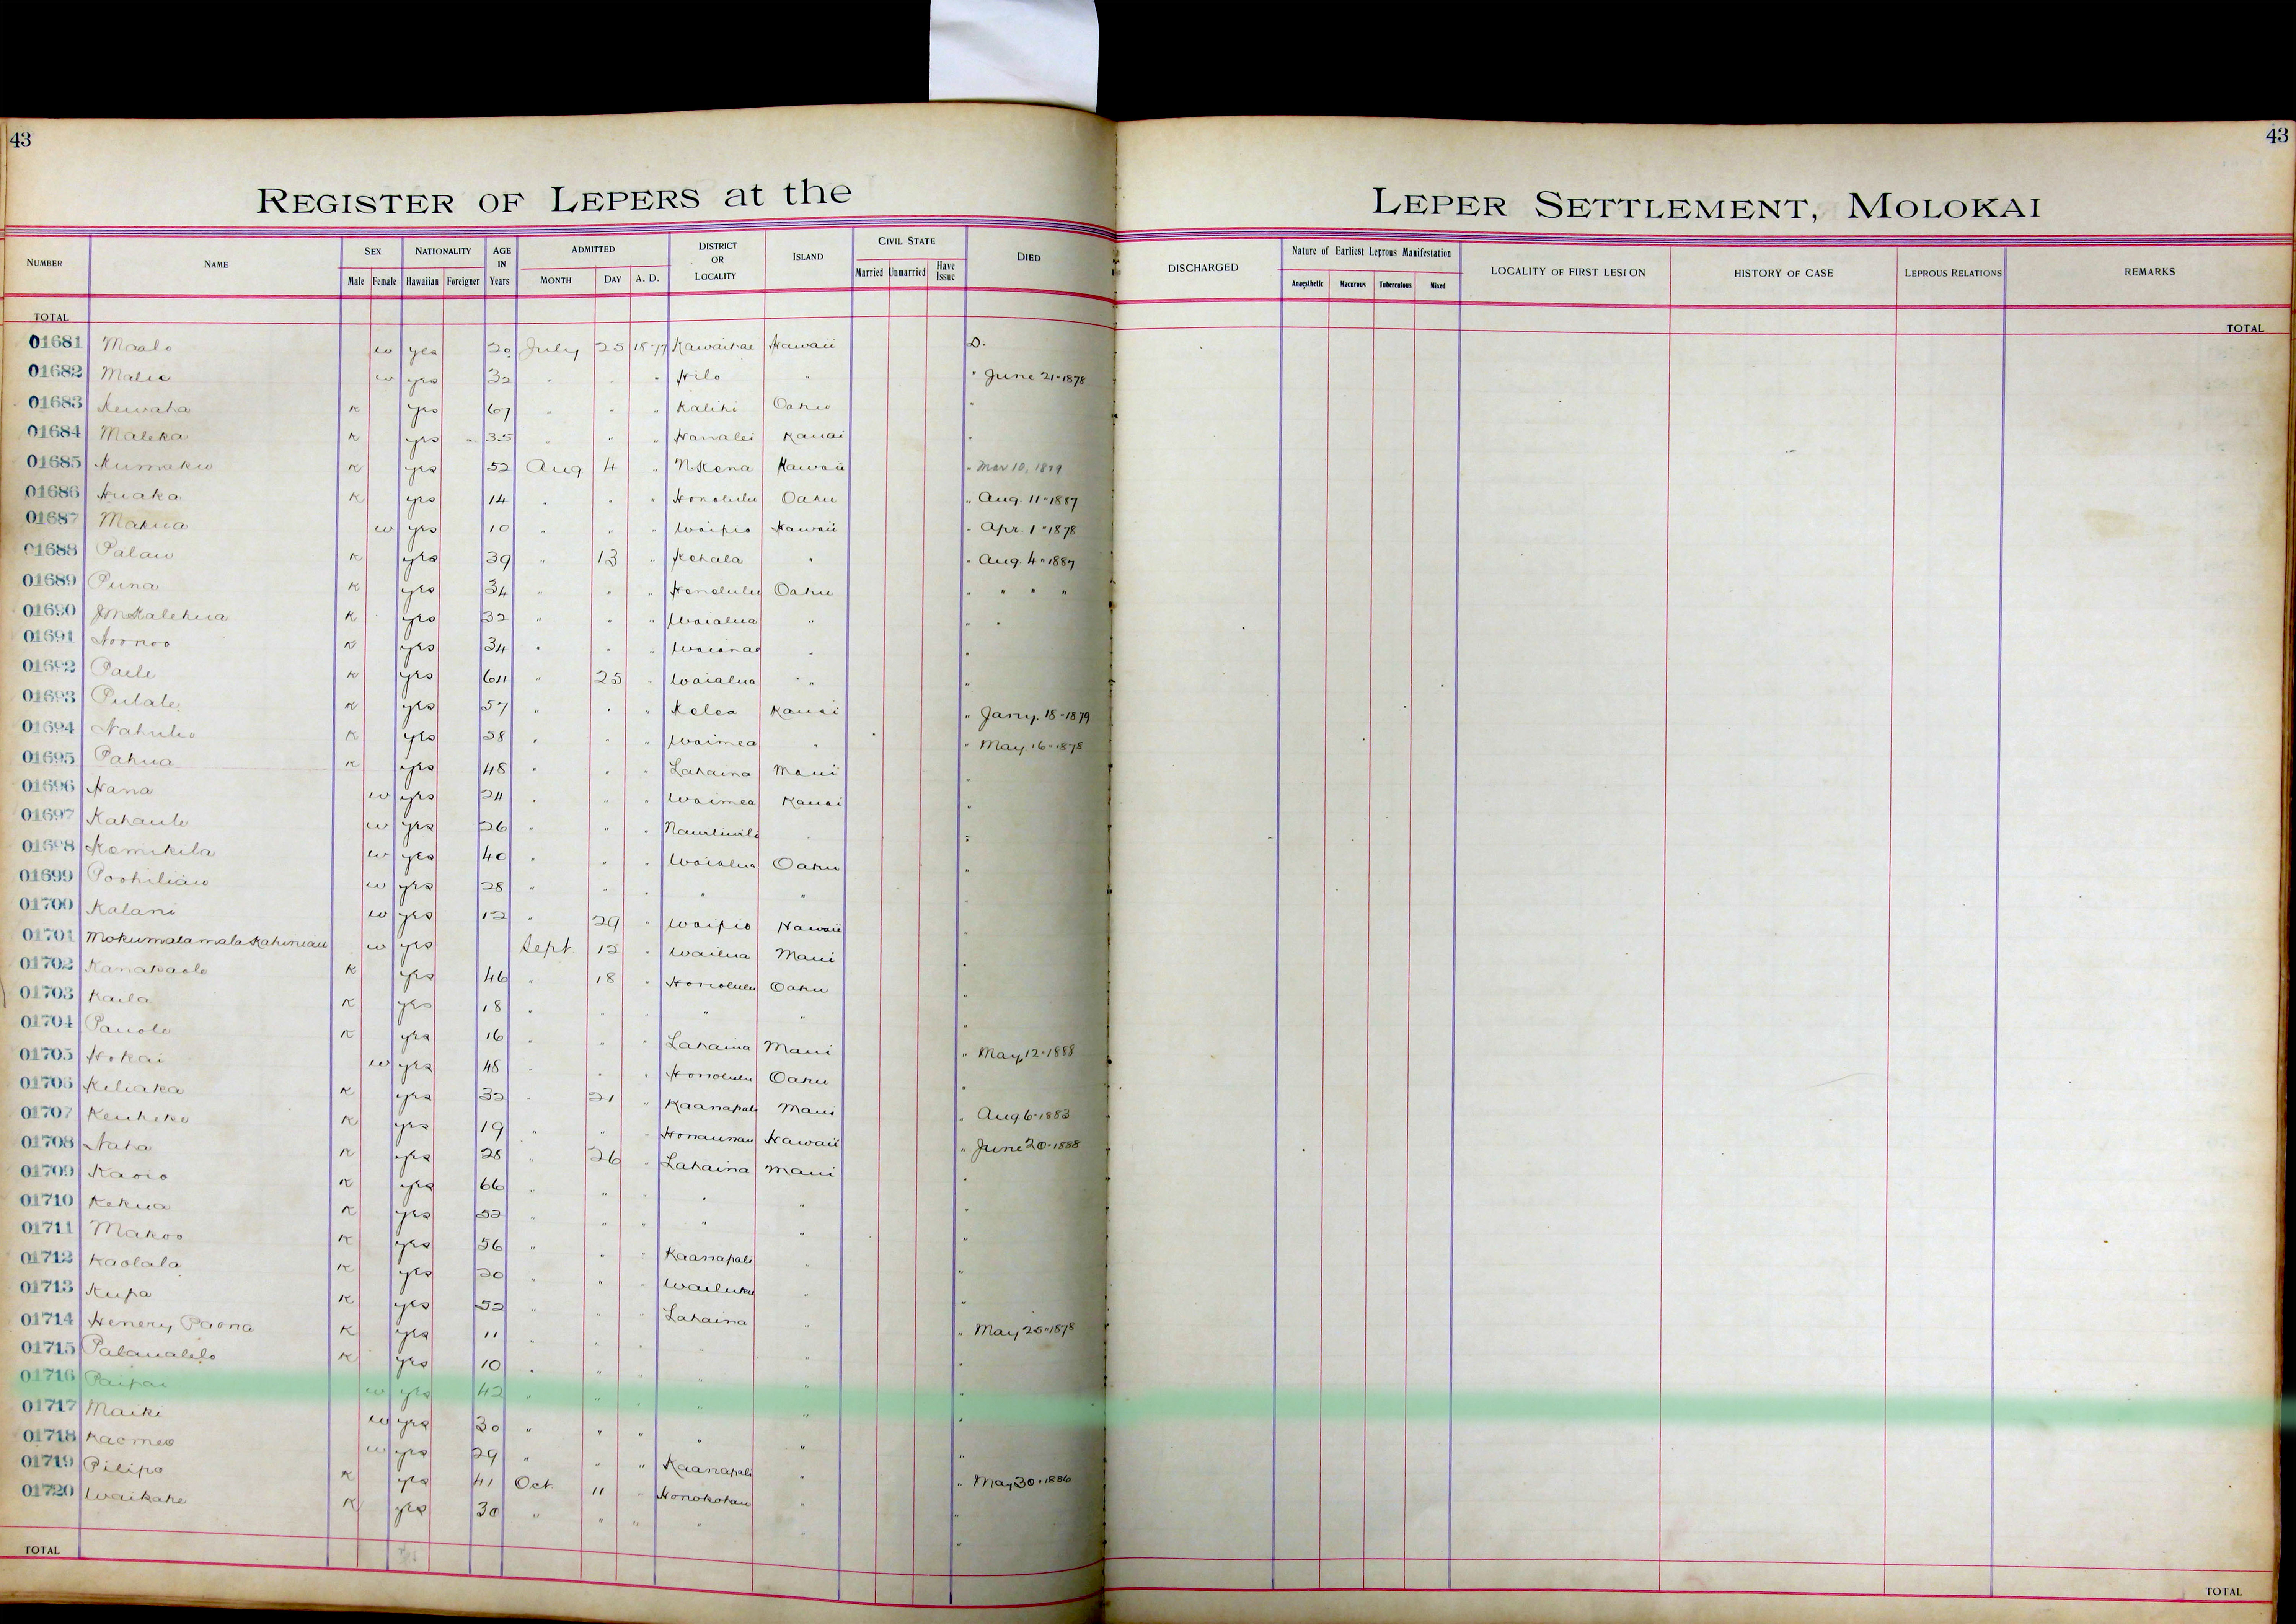 43
43
REGISTER OF LEPERS at the
LEPER SETTLEMENT, MOLOKAI
NUMBER NAME SEX Male Female NATIONALITY Hawaiian Foreigner AGE IN Years ADMITTED MONTH DAY A. D. DISTRICT OR LOCALITY ISLAND CIVIL STATE Married Unmarried Have Issue DIED
DISCHARGED Nature of Earliest Leprous Manifestation Anaesthetic Macurous Tuberculous Mixed LOCALITY OF FIRST LESION HISTORY OF CASE LEPROUS RELATIONS REMARKS
TOTAL
TOTAL
01681 Maalo w yes 20 July 25 1877 Kawaihae Hawaii D.
01682 Malie w yes 32 " " " Hilo " " June 21-1878
01683 Kewaha K yes 67 " " " Kalihi Oahu "
01684 Maleka K yes 35 " " " Hanalei Kauai "
01685 Kumaku K yes 52 Aug 4 " N. Kona Hawaii " Mar 10, 1879
01686 Huaka K yes 14 " " " Honolulu Oahu " Aug. 11-1887
01687 Makua w yes 10 " " " Waipio Hawaii " Apr. 1-1878
01688 Palau K yes 39 " 13 " Kohala " " Aug. 4-1887
01689 Puna K yes 34 " " " Honolulu Oahu " " " "
01690 J M Kalehua K yes 32 " " " Waialua " " "
01691 Noonoo K yes 34 " " " Waianae " "
01692 Paele K yes 64 " 25 " Waialua " "
01693 Pulale K yes 57 " " " Kolea Kauai " Jany. 18-1879
01694 Nahulio K yes 28 " " " Waimea " " May. 16-1878
01695 Pahua K yes 48 " " " Lahaina Maui "
01696 Hana w yes 24 " " " Waimea Kauai "
01697 Kahaule w yes 26 " " " Nawiliwili "
01698 Komikila w yes 40 " " " Waialua Oahu "
01699 Poohiliau w yes 28 " " " " "
01700 Kalani w yes 12 " 29 " Waipio Hawaii "
01701 Mokumalamala Kahiniau w yes Sept 12 " Wailua Maui "
01702 Kanakaole K yes 46 " 18 " Honolulu Oahu "
01703 Kaila K yes 18 " " " " " "
01704 Pauole K yes 16 " " " Lahaina Maui " May 12-1888
01705 Hokai w yes 48 " " " Honolulu Oahu "
01706 Keliaka K yes 32 " 21 " Kaanapali Maui " Aug 6-1883
01707 Keuheke K yes 19 " " " Honaunau Hawaii " June 20-1888
01708 Naha K yes 28 " 26 " Lahaina Maui "
01709 Kaoio K yes 66 " " " " " "
01710 Kekua K yes 52 " " " " "
01711 Makoo K yes 56 " " " Kaanapali " "
01712 Kaolala K yes 20 " " " Wailuku " "
01713 Kupa K yes 52 " " " Lahaina " " May 25-1878
01714 Henery Paona K yes 11 " " " " " "
01715 Palaualelo K yes 10 " " " " " "
01716 Paipai w yes 42 " " " " " "
01717 Maiki w yes 30 " " " " " "
01718 Kaomeo w yes 29 " " " Kaanapali " " May 30-1886
01719 Pilipo K yes 41 Oct 11 " Honokohau " "
01720 Waikahe K yes 30 " " " " " "
TOTAL
TOTAL